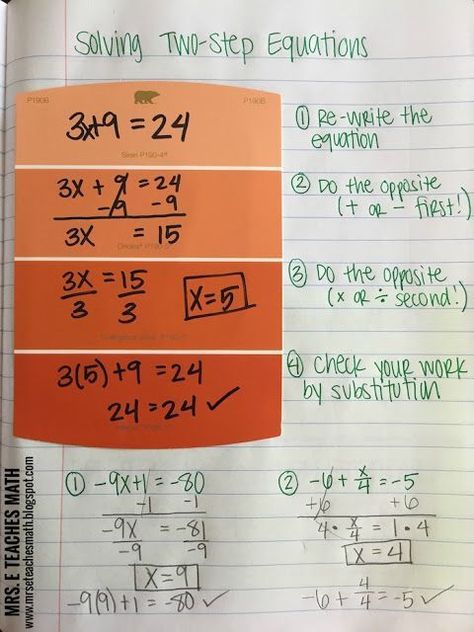 Solving Two-Step Equations
P190B P190B
3x+9 = 24
① Re-write the
equation
3x + 9 = 24
-9 -9
3x = 15
② Do the opposite
(+ or - first!)
3x = 15
3 3
x=5
③ Do the opposite
(x or ÷ second!)
3(5)+9 = 24
24 = 24 ✓
④ Check your work
by substitution
① -9x+1 = -80
-1 -1
-9x = -81
-9 -9
x=9
-9(9)+1 = -80 ✓
② -6 + x/4 = -5
+6 +6
4 · x/4 = 1 · 4
x=4
-6 + 4/4 = -5 ✓
MRS. E TEACHES MATH
www.mrseteachesmath.blogspot.com